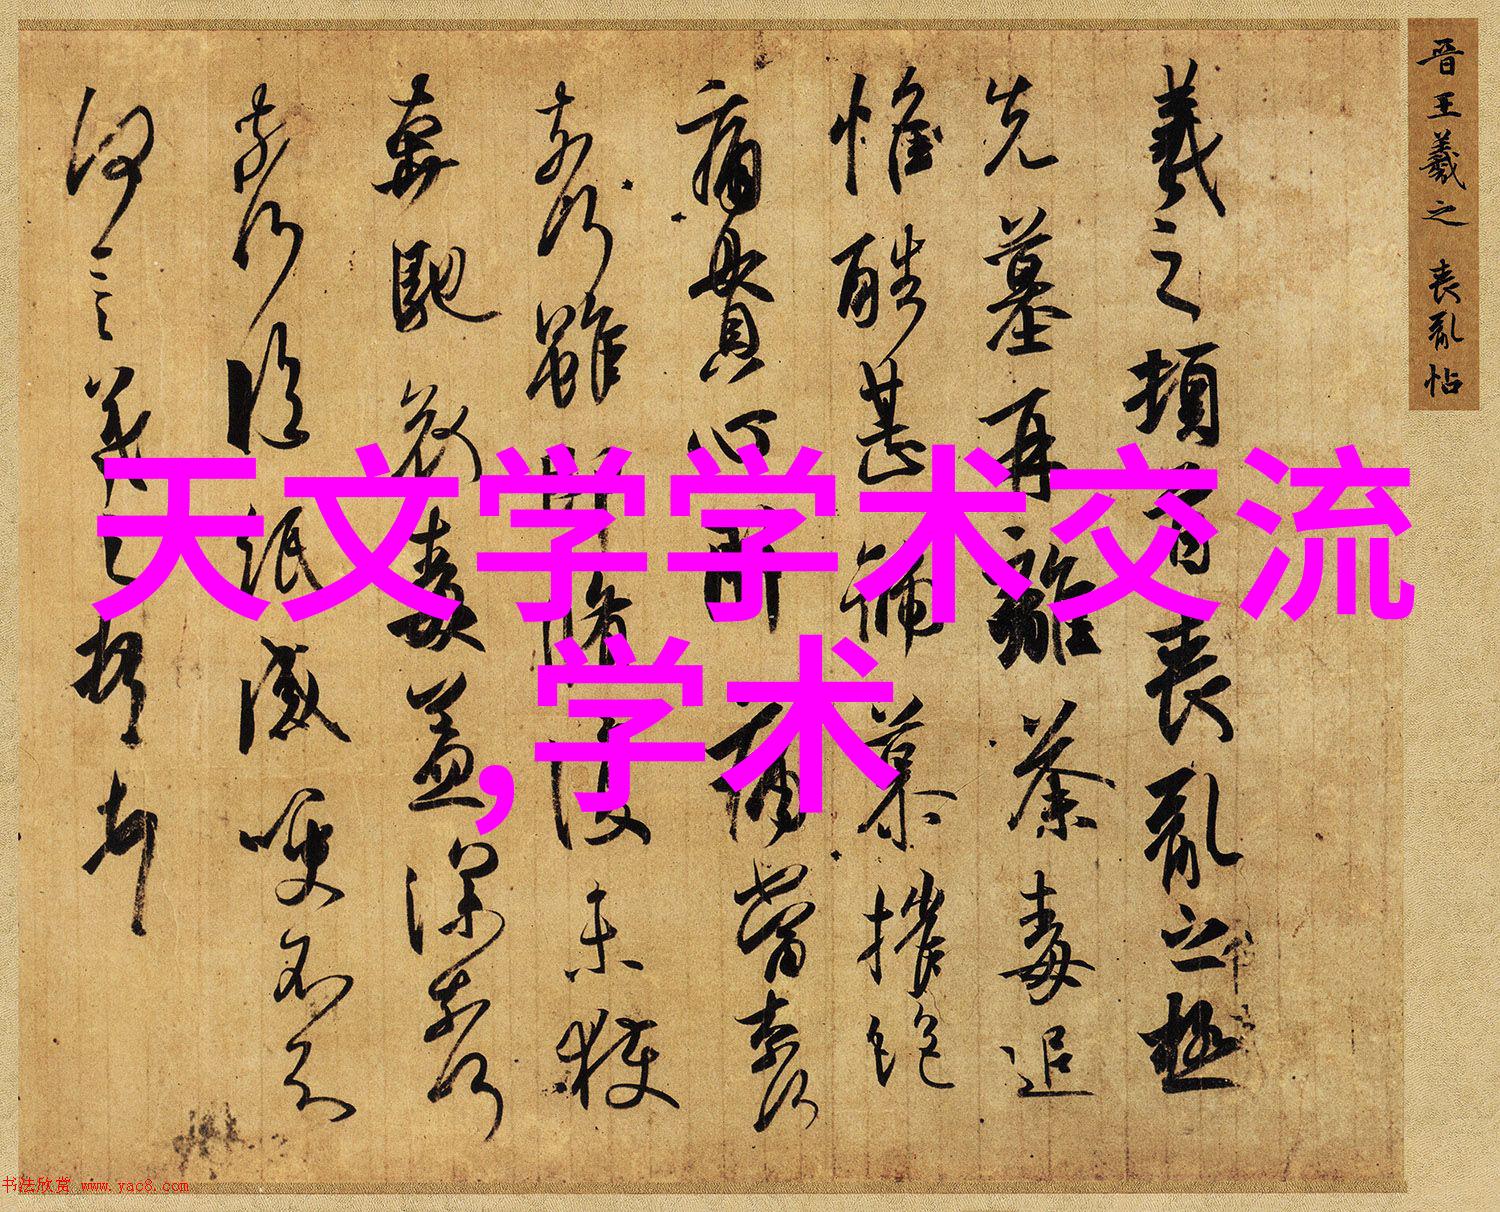 晋王羲之 丧乱帖
羲之顿首丧乱之极
先墓再離荼毒追
惟酷甚號慕摧絶
痛貫心肝痛當奈何
奈何雖即脩復未獲
奔馳哀毒益深奈何
奈何臨紙感哽不知
何言羲之頓首
天文学学术交流
,学术
书法欣赏 www.yac8.com